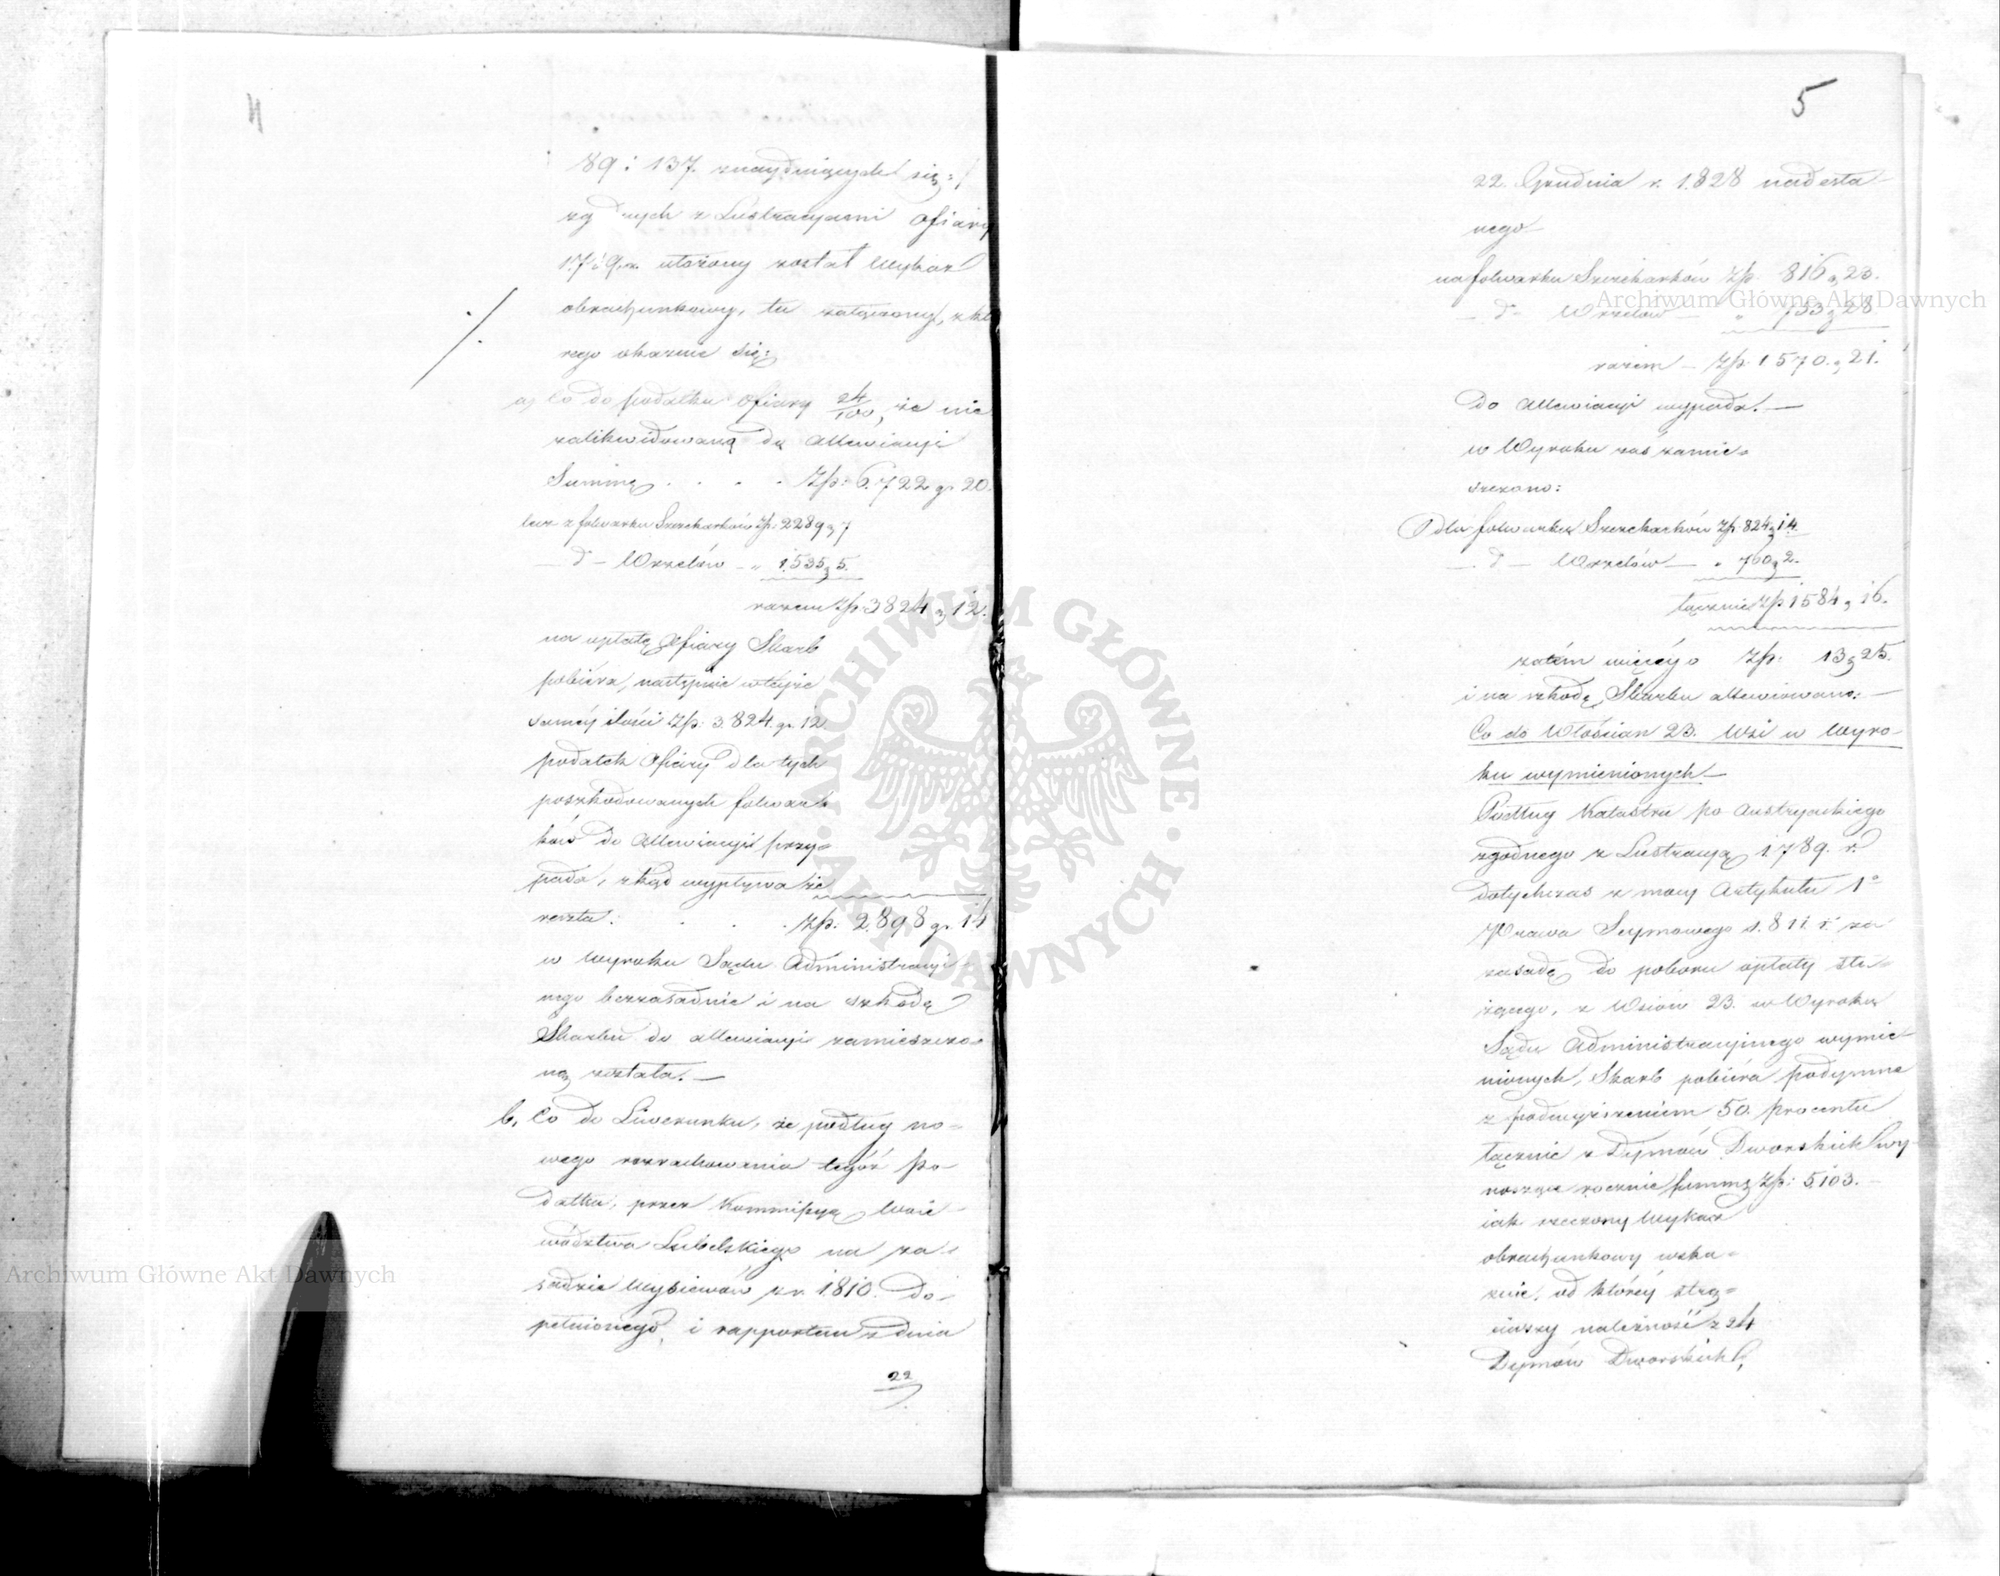 4
89 i 137. znaydujących się
zgodnych z Lustracyami Ofiary
1789 r. ułożony został Wykaz
obrachunkowy, tu załączony, z któ
rego okazuie się:
a, Co do podatku Ofiary 24/100, że nie
zalikwidowaną do allewiacyi
Summę . . . . Złp: 6.722 gr 20.
lecz z folwarku Szczekarków złp: 2289 g 7
— d° — Wrzelów — „ 1.535 g 5.
razem złp: 3824 g 12.
na opłatę Ofiary Skarb
pobiéra, następnie w téjże
saméy ilości złp: 3.824. gr. 12
podatek Ofiary dla tych
poszkodowanych folwar
ków do allewiacyi przy=
pada, zkąd wypływa że
reszta: . . . Złp: 2.898 gr. 14
w Wyroku Sądu Administracyi=
nego bezzasadnie i na szkodę
Skarbu do allewiacyi zamieszczo=
ną została. —
b, Co do Liwerunku, że podług no=
wego rozrachowania tegoż po=
datku, przez Kommissyą Woie=
wództwa Lubelskiego na za=
sadzie Wysiewów z r. 1810. do=
pełnionego, i rapportem z dnia
22
5
22. Grudnia r. 1828 nadesła
nego
na folwarku Szczekarków złp. 816 g 23.
— d° — Wrzelów — „ 753 g 28.
razem — Złp. 1570. g 21.
do allewiacyi wypada. —
w Wyroku zaś zamie=
szczono:
dla folwarku Szczekarków złp. 824 g 14.
— d° — Wrzelów — „ 760 g 2.
łącznie złp 1584 g 16.
zatém więcéy o Złp: 13 g 25.
i na szkodę Skarbu allewiowano: —
Co do Włościan 23. Wsi w Wyro=
ku wymienionych —
Podług Katastru po-austryackiego
zgodnego z Lustracyą 1789. r.
dotychczas z mocy Artykułu 1°
Prawa Seymowego 1811. r. za
zasadę do poboru opłaty słu=
żącego, z Wsiów 23. w Wyroku
Sądu Administracyinego wymie=
nionych, Skarb pobiéra podymne
z podwyższeniem 50. procentu
łącznie z Dymów Dworskich wy=
noszące rocznie summę złp: 5.103. —
iak rzeczony Wykaz
obrachunkowy wska=
zuie, od któréy strą=
ciwszy należność z 24
Dymów Dworskich,
Archiwum Główne Akt Dawnych
Archiwum Główne Akt Dawnych
ARCHIWUM GŁÓWNE · AKT DAWNYCH ·